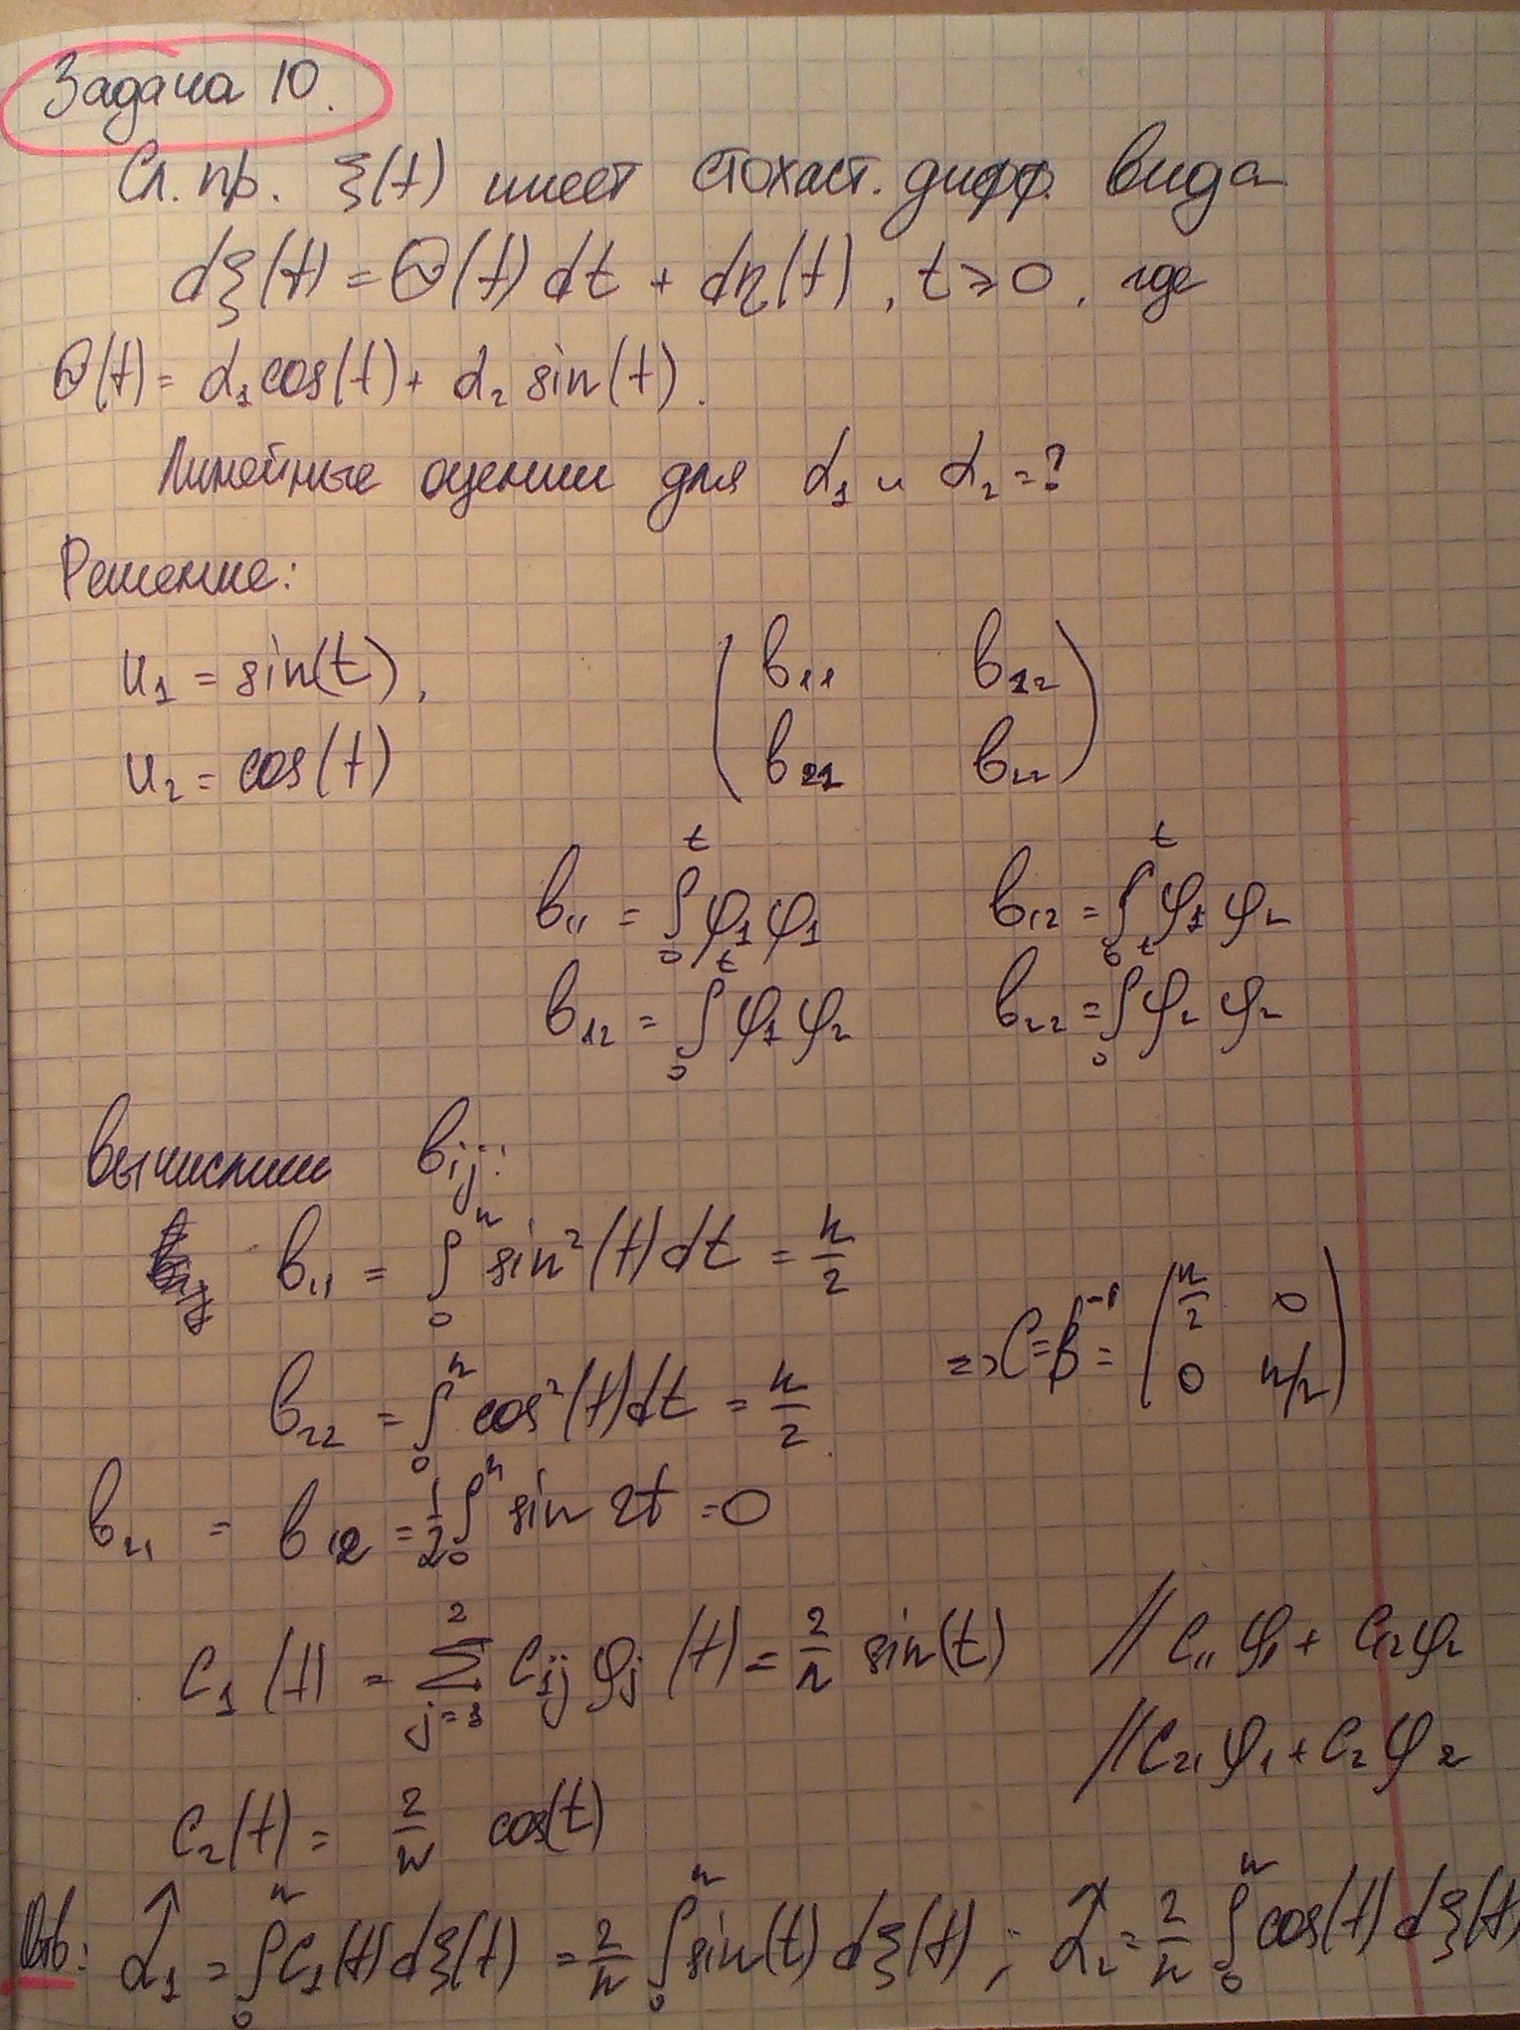 Задача 10.
Сл. пр. ξ(t) имеет стохаст. дифф. вида
dξ(t) = Θ(t) dt + dη(t), t ⩾ 0, где
Θ(t) = α₁ cos(t) + α₂ sin(t).
Линейные оценки для α₁ и α₂ = ?
Решение:
u₁ = sin(t),
u₂ = cos(t)
( b₁₁ b₁₂
b₂₁ b₂₂ )
b₁₁ = ∫₀ᵗ φ₁ φ₁ b₁₂ = ∫₀ᵗ φ₁ φ₂
b₁₂ = ∫₀ᵗ φ₁ φ₂ b₂₂ = ∫₀ᵗ φ₂ φ₂
вычислим bᵢⱼ:
b₁₁ = ∫₀ⁿ sin²(t) dt = n/2
b₂₂ = ∫₀ⁿ cos²(t) dt = n/2.
=> C = B⁻¹ = ( n/2 0
0 n/2 )
b₂₁ = b₁₂ = 1/2 ∫₀ⁿ sin 2t = 0
C₁(t) = ∑²ⱼ₌₁ C₁ⱼ φⱼ(t) = 2/n sin(t) // C₁₁ φ₁ + C₁₂ φ₂
// C₂₁ φ₁ + C₂ φ₂
C₂(t) = 2/n cos(t)
Отв: α̂₁ = ∫₀ⁿ C₁(t) dξ(t) = 2/n ∫₀ⁿ sin(t) dξ(t); α̂₂ = 2/n ∫₀ⁿ cos(t) dξ(t)